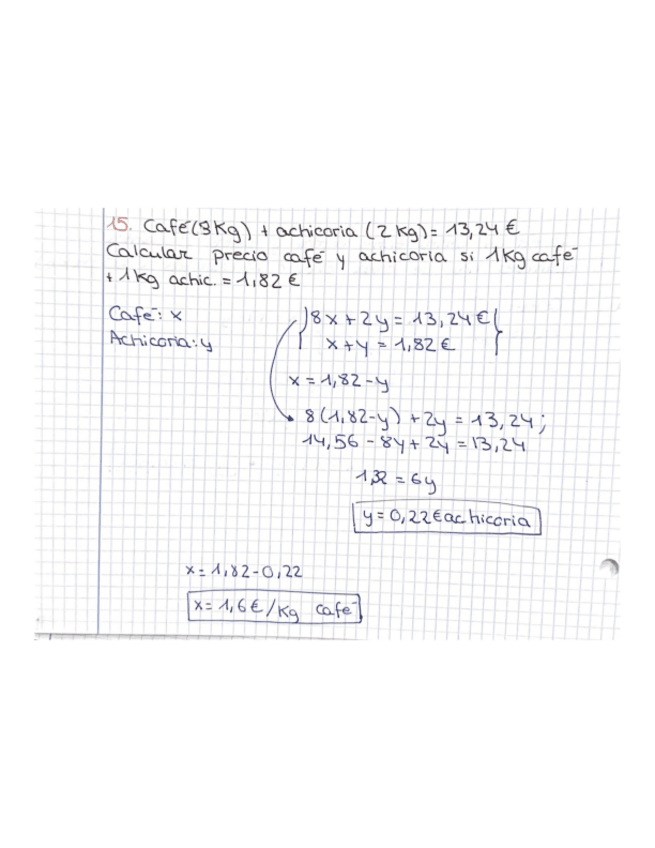 15. Café (8 Kg) + achicoria (2 Kg) = 13,24 €
Calcular precio café y achicoria si 1Kg café
+ 1Kg achic. = 1,82 €
Café: x
Achicoria: y
8x + 2y = 13,24 €
x + y = 1,82 €
x = 1,82 - y
8 (1,82 - y) + 2y = 13,24 ;
14,56 - 8y + 2y = 13,24
1,32 = 6y
y = 0,22 € achicoria
x = 1,82 - 0,22
x = 1,6 € / Kg café